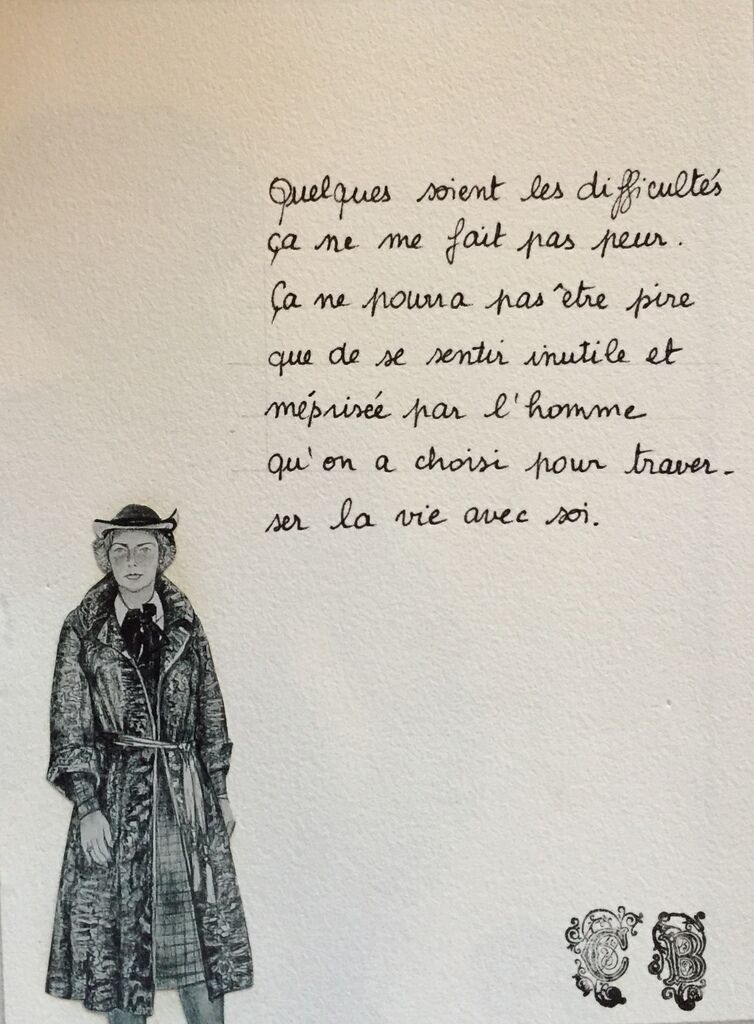 Quelques soient les difficultés
ça ne me fait pas peur.
Ça ne pourra pas être pire
que de se sentir inutile et
méprisée par l'homme
qu'on a choisi pour traver-
ser la vie avec soi.
C B